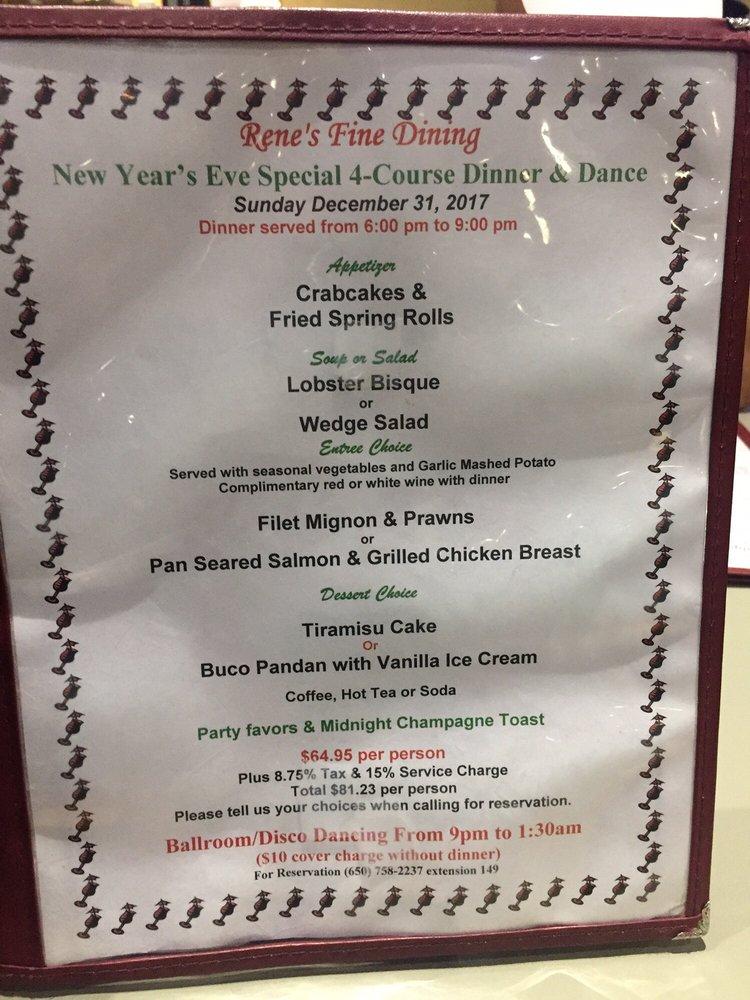 Rene's Fine Dining
New Year's Eve Special 4-Course Dinner & Dance
Sunday December 31, 2017
Dinner served from 6:00 pm to 9:00 pm
Appetizer
Crabcakes &
Fried Spring Rolls
Soup or Salad
Lobster Bisque
or
Wedge Salad
Entree Choice
Served with seasonal vegetables and Garlic Mashed Potato
Complimentary red or white wine with dinner
Filet Mignon & Prawns
or
Pan Seared Salmon & Grilled Chicken Breast
Dessert Choice
Tiramisu Cake
Or
Buco Pandan with Vanilla Ice Cream
Coffee, Hot Tea or Soda
Party favors & Midnight Champagne Toast
$64.95 per person
Plus 8.75% Tax & 15% Service Charge
Total $81.23 per person
Please tell us your choices when calling for reservation.
Ballroom/Disco Dancing From 9pm to 1:30am
($10 cover charge without dinner)
For Reservation (650) 758-2237 extension 149